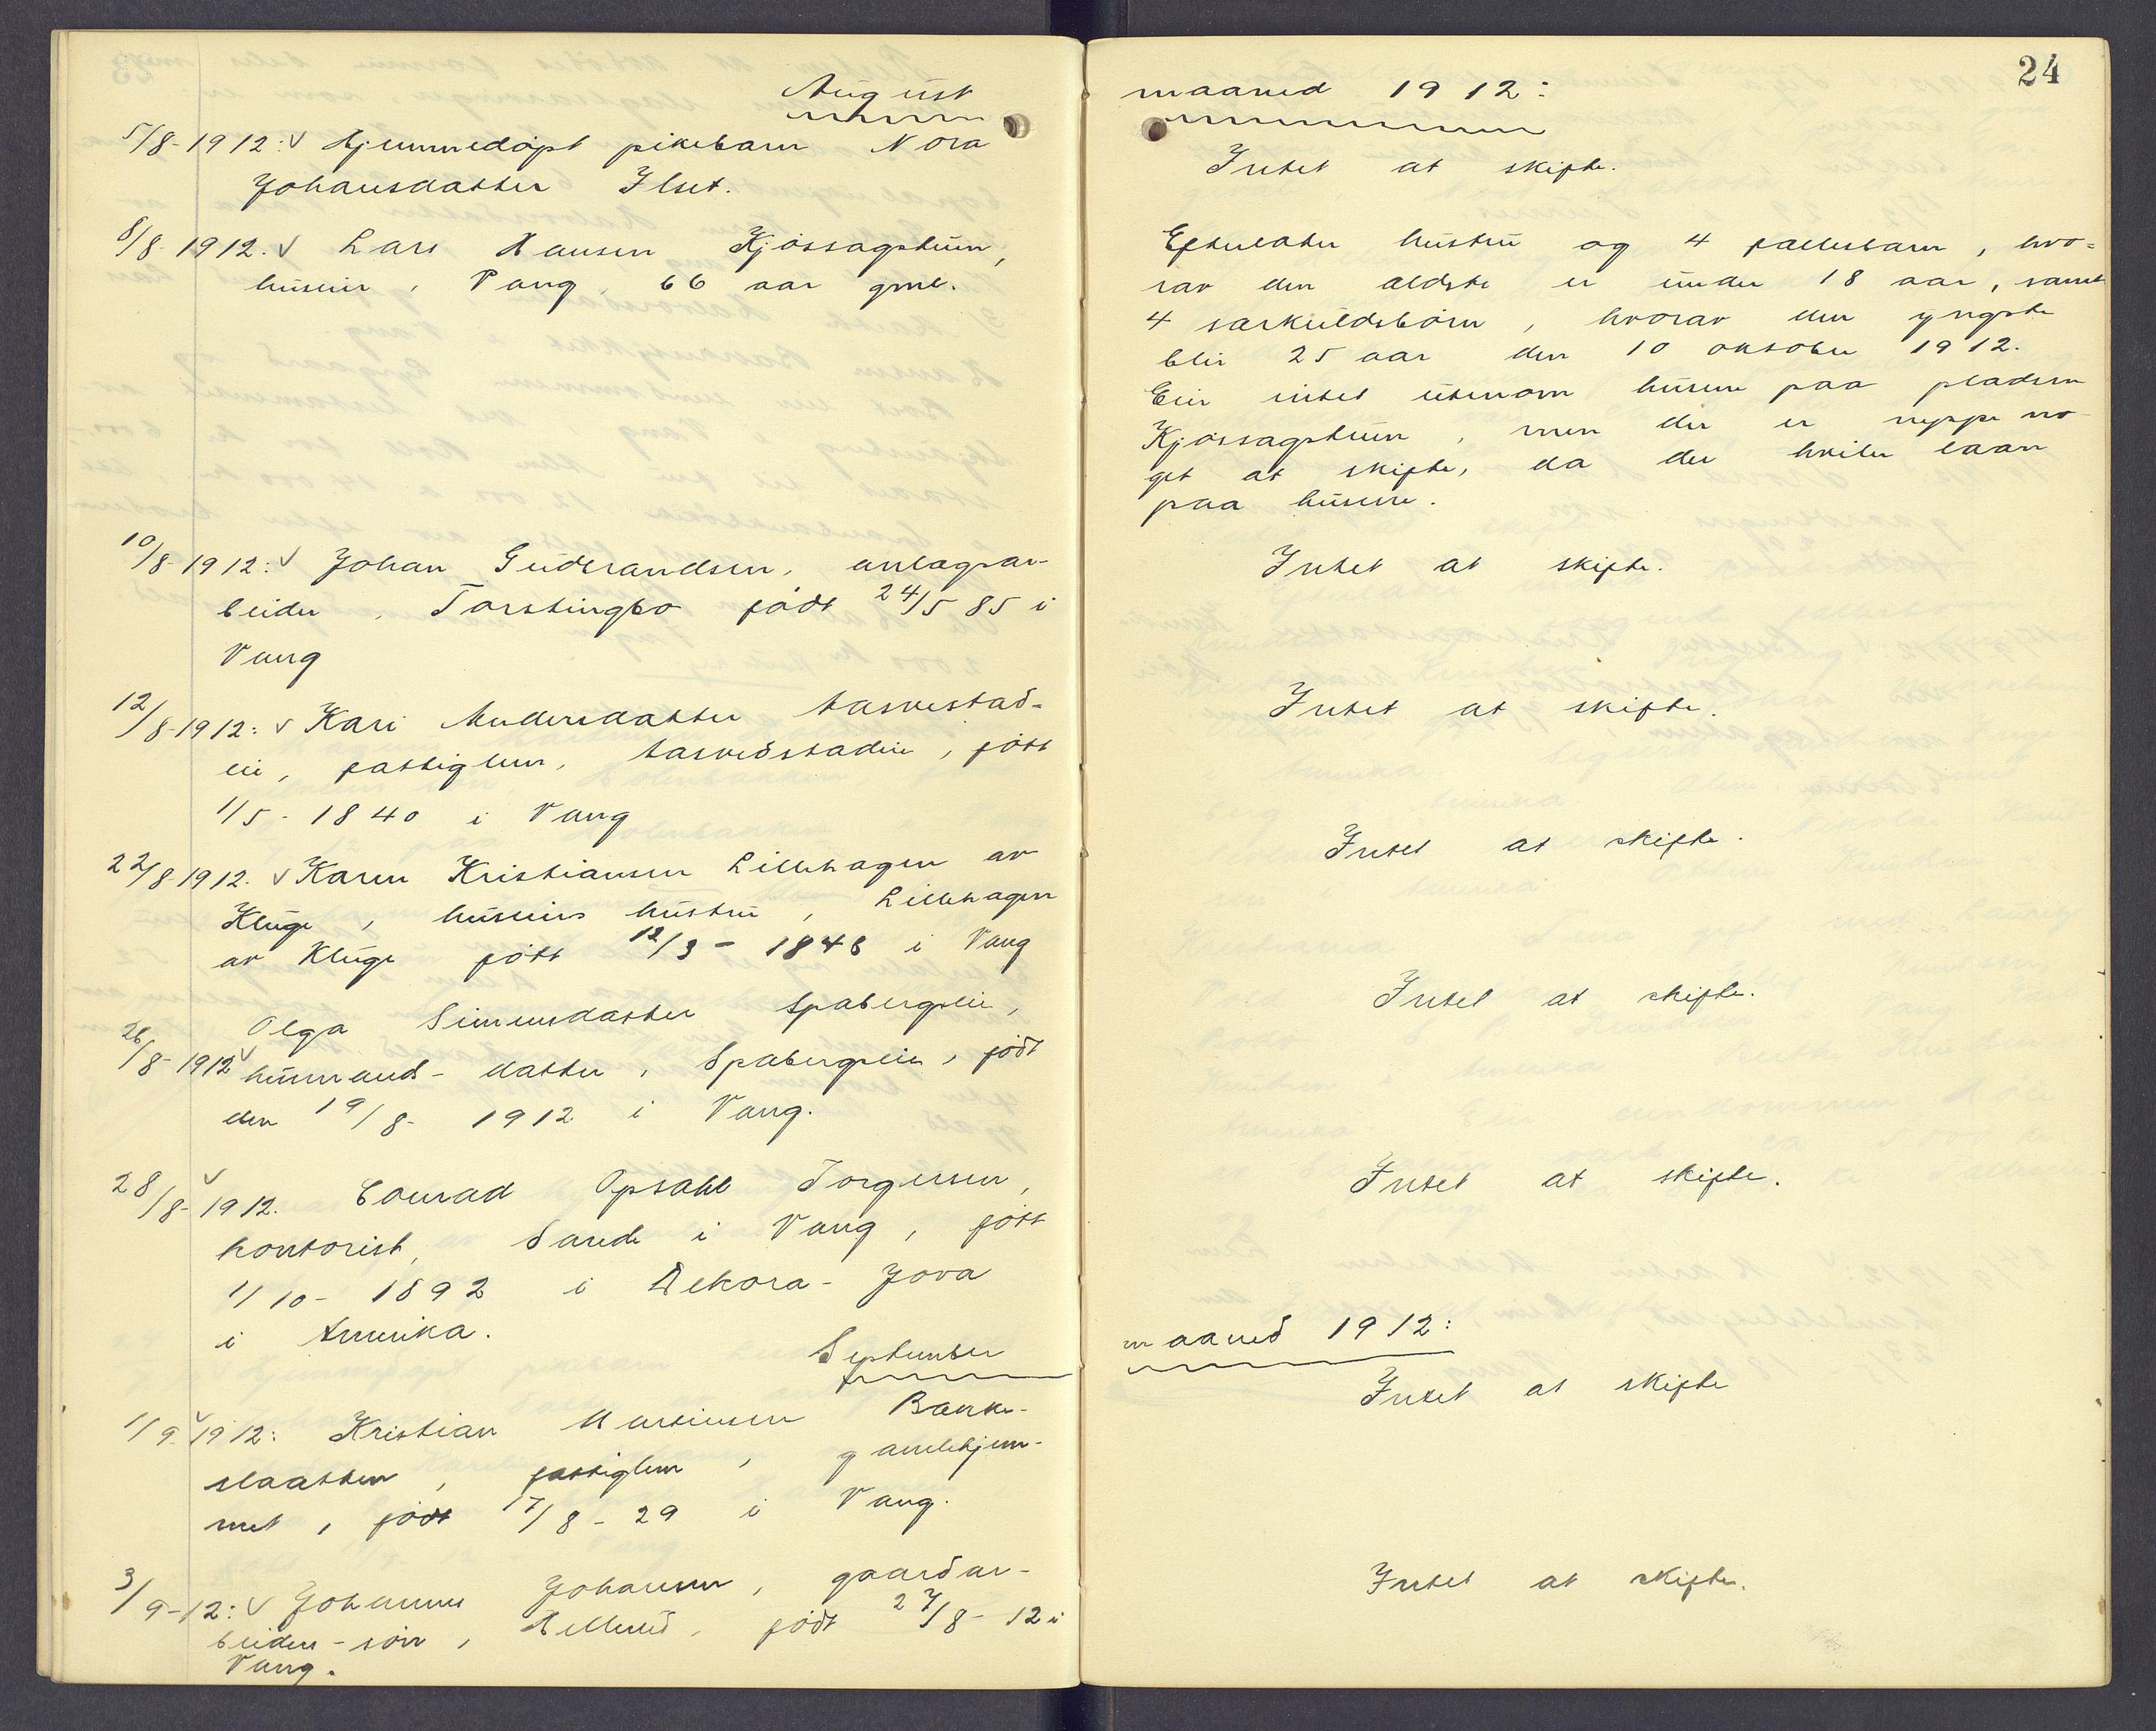 August
5/8-1912: v Hjemmedöpt pikebarn Nora
Johansdatter Ilset.
8/8-1912. v Lars Hansen Kjössagstuen,
huseier, Vang, 66 aar gml.
10/8-1912: v Johan Gudbrandsen, anlægsar-
beider, Torstingbo födt 24/5 85 i
Vang
12/8-1912: v Kari Andersdatter Aasvestad-
eie, fattiglem, Aasvedstadeie, födt
1/5-1840 i Vang
22/8-1912. v Karen Kristiansen Lillehagen av
Kluge, huseiers hustru, Lillehagen
av Kluge födt 12/3-1848 i Vang
Olga Simensdatter Spabergseie,
26/8-1912 v husmands-datter, Spabergseie, födt
den 19/8-1912 i Vang.
28/8-1912. v Conrad Opsahl Torgersen,
kontorist, Sande i Vang, födt
1/10-1892 i Dekora-Jova
i Amerika.
September
1/9-1912: v Kristian Martinsen Banke-
slaatten, fattiglem, gamlehjem-
met, födt 17/8-29 i Vang.
3/9-12: v Johannes Johansen, gaardar-
beiders-sön, Hellerud, födt 27/8-12 i
Vang.
24
maaned 1912:
Intet at skifte.
Efterlater hustru og 4 fællesbarn, hvo=
rav den ældste er under 18 aar, samt
4 særkuldsbörn, hvorav den yngste
blir 25 aar den 10 oktober 1912.
Eier intet utenom husene paa pladsen
Kjössagstuen, men der er neppe no-
get at skifte, da der hviler laan
paa husene.
Intet at skifte.
Intet at skifte.
Intet at skifte.
Intet at skifte.
Intet at skifte.
maaned 1912:
Intet at skifte
Intet at skifte.